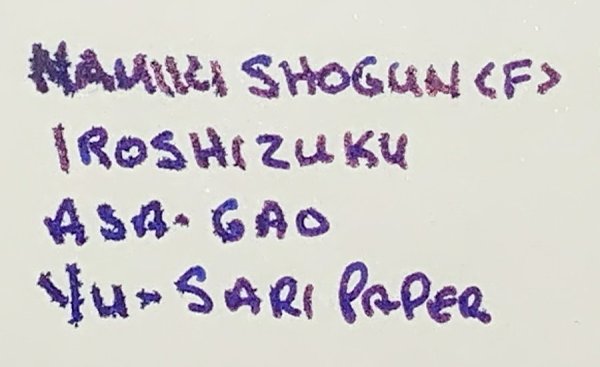 NAMIIKI SHOGUN <F>
IROSHIZUKU
ASA-GAO
YU-SARI PAPER